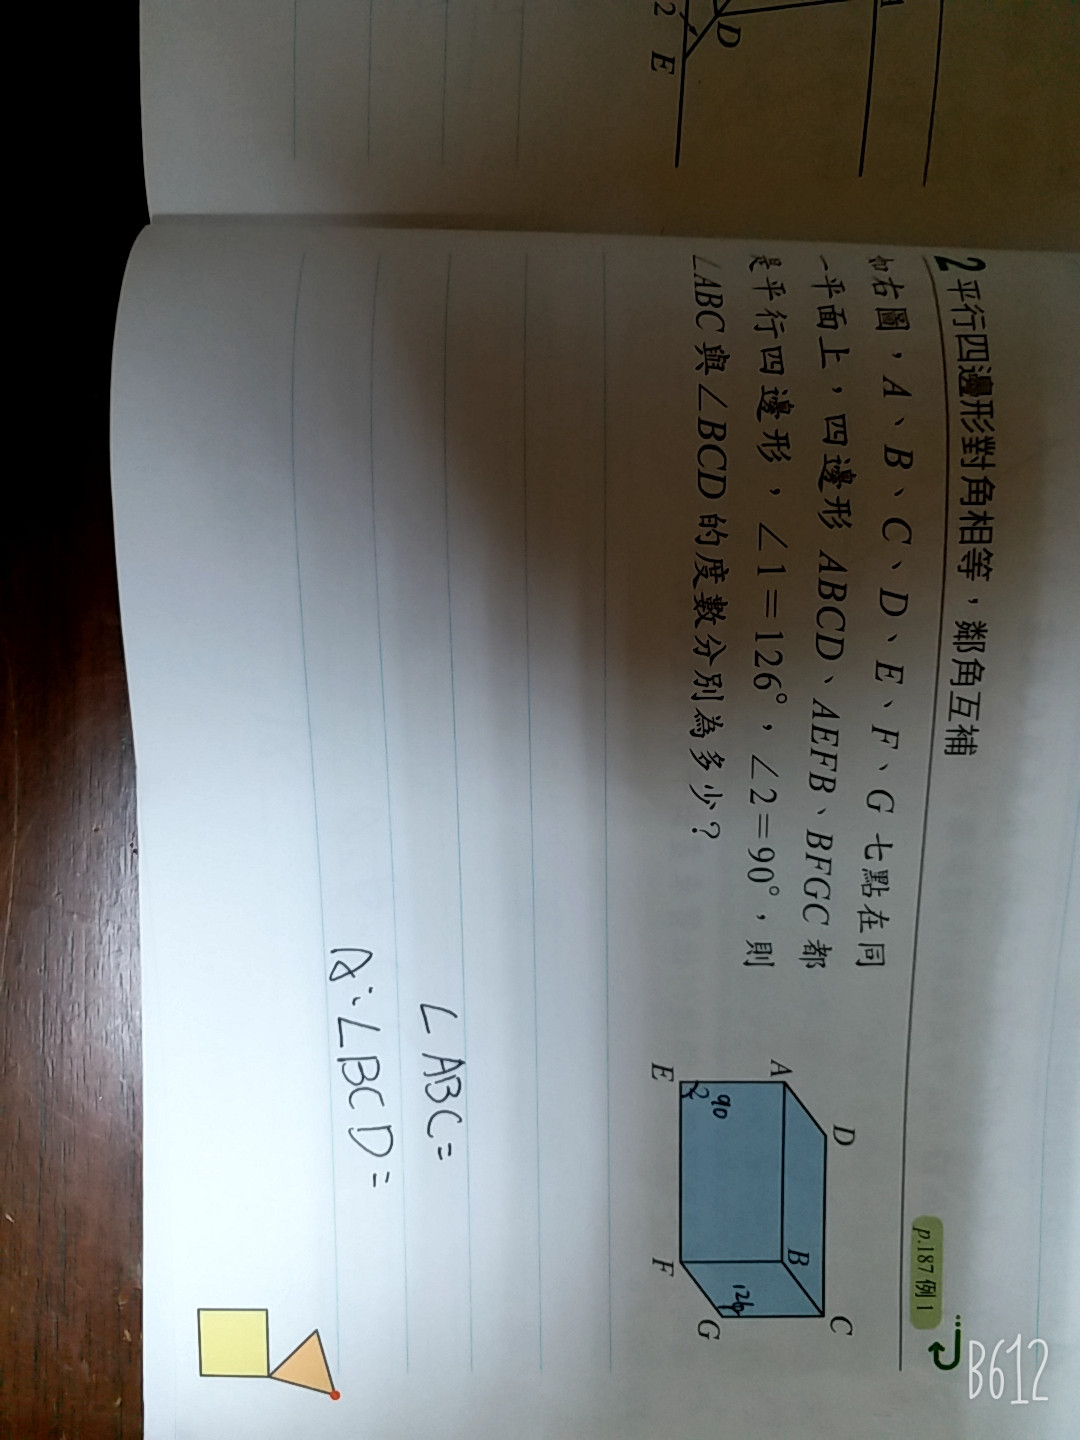 D
2
E
2 平行四邊形對角相等,鄰角互補
p.187 例 1
如右圖,A、B、C、D、E、F、G 七點在同
一平面上,四邊形 ABCD、AEFB、BFGC 都
是平行四邊形,∠1=126°,∠2=90°,則
∠ABC 與 ∠BCD 的度數分別為多少?
D
C
A
B
90
2
126
E
F
G
∠ABC=
A:∠BCD=
B612